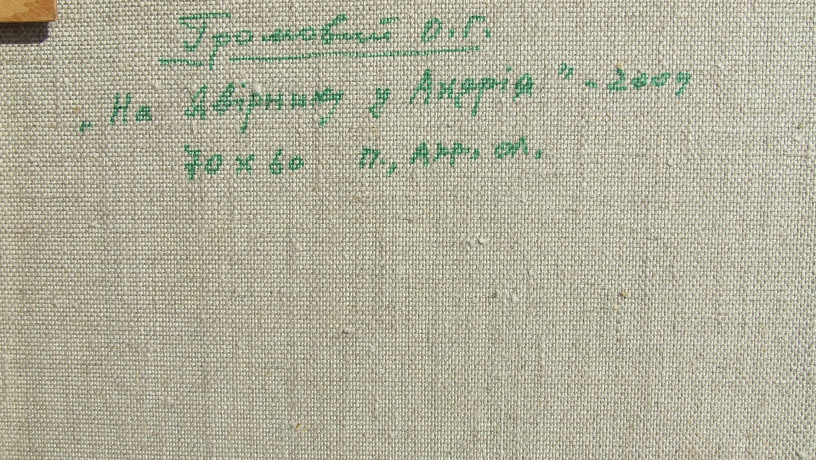 Громовий О.Г.
„На Двірнику у Андрія" - 2009
70 х 60 п., акр., ол.